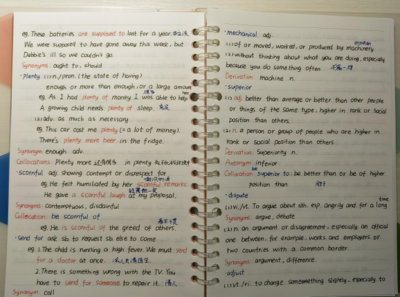 eg. These batteries are supposed to last for a year.
We were support to have gone away this week, but
Debbie's ill so we couldn't go.
Synonyms ought to, should
·plenty (1).n./pron. (the state of having)
enough or more than enough, or a large amount
eg. As I had plenty of money I was able to help
A growing child needs plenty of sleep.
(2).adv. as much as necessary
eg. This car cost me plenty (= a lot of money).
There's plenty more beer in the fridge.
Synonym: enough adv.
Collocations: Plenty more in plenty
·scornful adj. showing contempt or disrespect for
eg. He felt humiliated by her scornful remarks
He gave a scornful laugh at my proposal.
Synonyms: contemptuous, disdainful
Collocation: be scornful of
eg. He is scornful of the greed of others.
·send for ask sb to request sb else to come
eg. 1. The child is running a high fever. We must send
for a doctor at once.
2. There is something wrong with the TV. You
have to send for someone to repair it.
Synonym: call
·mechanical adj.
(1) of or moved, worked, or produced by machinery
(2) without thinking about what you are doing, especially
because you do something often
Derivation: machine n.
·superior
(1) adj. better than average or better than other people
or things of the same type, higher in rank or social
position than others.
(2) n. a person or group of people who are higher in
rank or social position than others
Derivation: Superiority n.
Antonym: inferior
Collocation: superior to: be better than or be of higher
position than
·dispute
(1) v./vt. To argue about sth. esp. angrily and for a long time
Synonyms: argue, debate
(2) n. an argument or disagreement, especially an official
one between, for example, works and employers or
two countries with a common border
Synonyms: argument, difference.
adjust
(1) vt./vi. to change something slightly, especially to